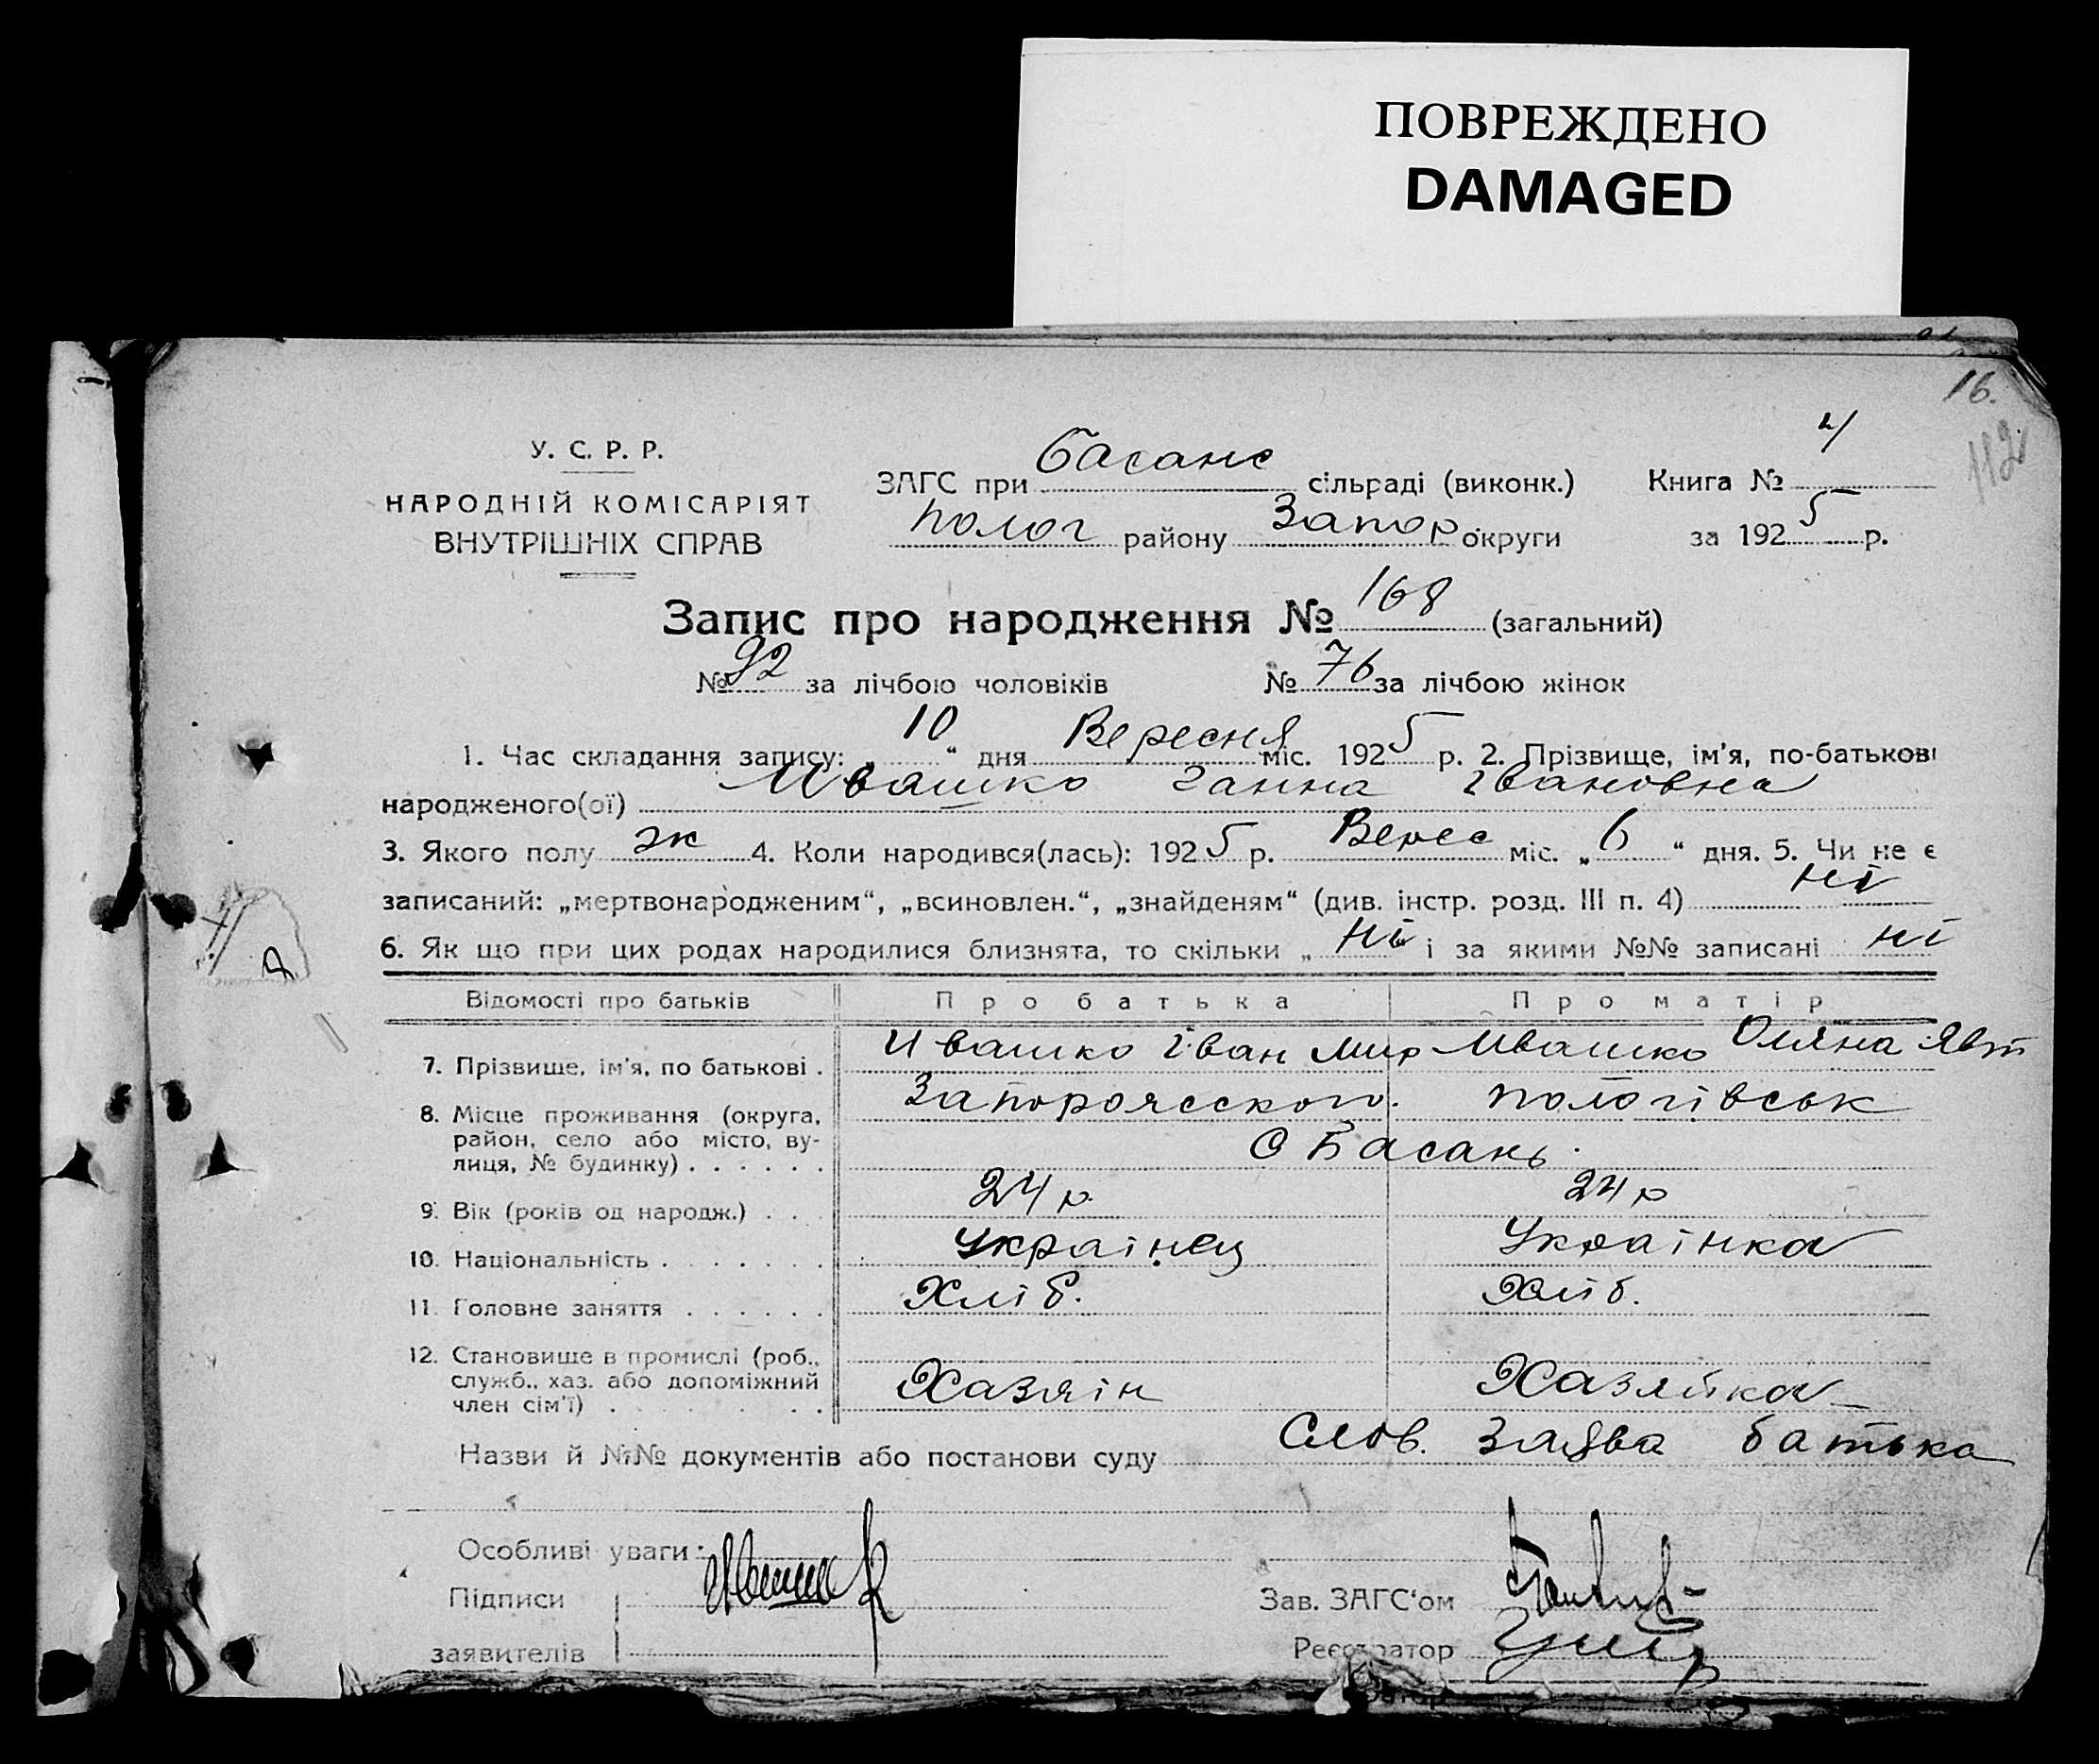 ПОВРЕЖДЕНО
DAMAGED
16.
112
У. С. Р. Р.
НАРОДНІЙ КОМІСАРІЯТ
ВНУТРІШНІХ СПРАВ
ЗАГС при Басанс сільраді (виконк.) Книга № 4
Полог району Запор округи за 1925 р.
Запис про народження № 168 (загальний)
№ 92 за лічбою чоловіків № 76 за лічбою жінок
1. Час складання запису: „ 10 “ дня Вересня міс. 1925 р. 2. Прізвище, ім'я, по-батькові
народженого(ої) Ивашко Ганна Івановна
3. Якого полу ж 4. Коли народився(лась): 1925 р. Верес міс. „ 6 “ дня. 5. Чи не є
записаний: „мертвонародженим“, „всиновлен.“, „знайденям“ (див. інстр. розд. III п. 4) ні
6. Як що при цих родах народилися близнята, то скільки „ ні і за якими №№ записані ні
Відомості про батьків Про батька Про матір
7. Прізвище, ім'я, по батькові . Ивашко Іван Мир Ивашко Оляна Явт
8. Місце проживання (округа, Запорожсского. пологівськ
район, село або місто, ву-
лиця, № будинку) . . . . . . С Басань.
9. Вік (років од народж.) . . . 24 р. 24 р
10. Національність . . . . . . . Українец Українка
11. Головне заняття . . . . . . Хліб. Хліб.
12. Становище в промислі (роб.,
служб., хаз. або допоміжний Хазяін Хазяйка
член сім'ї) . . . . .
Назви й №№ документів або постанови суду Слов. заява батька
Особливі уваги:
Підписи Зав. ЗАГС'ом
заявителів Реєстратор